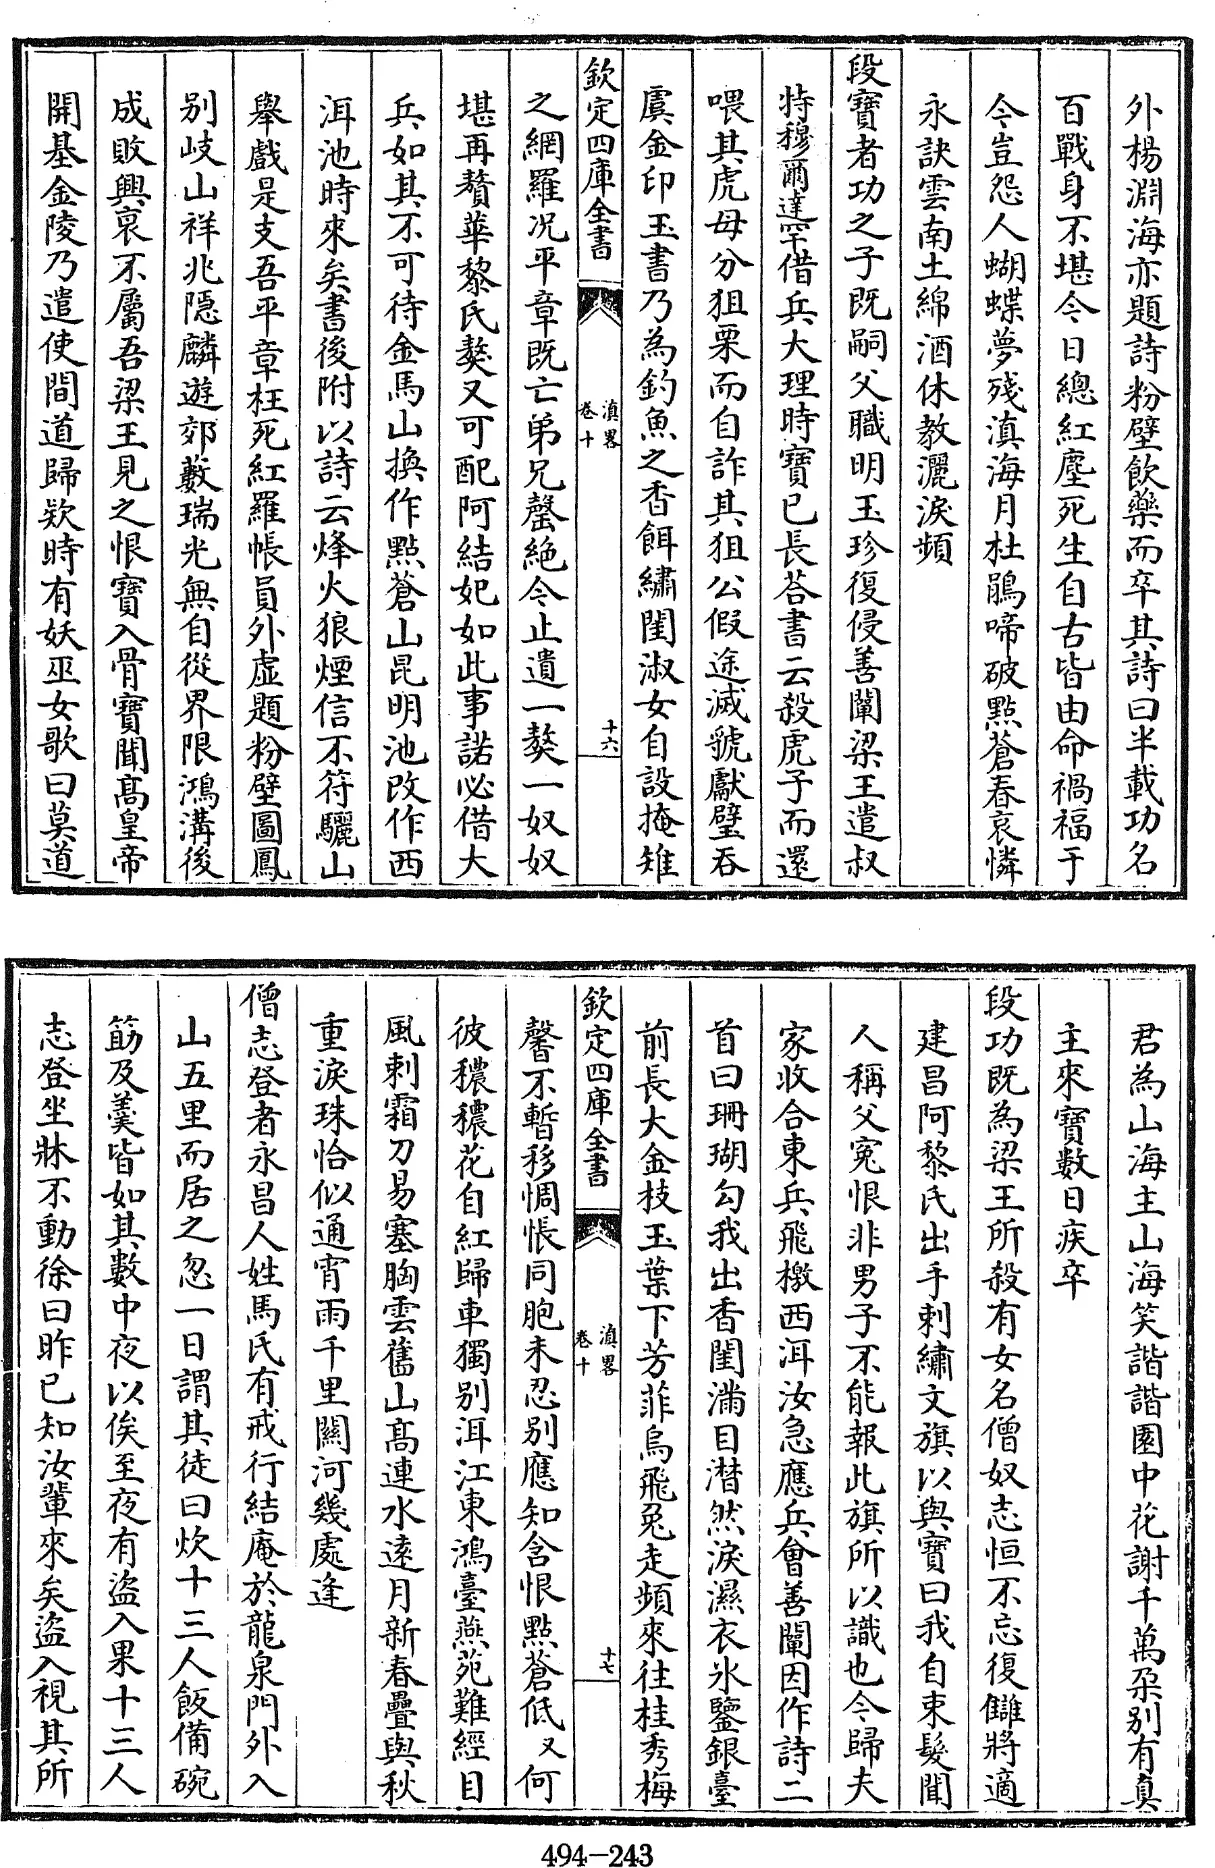 外楊淵海亦題詩粉壁飲藥而卒其詩曰半載功名
百戰身不堪今日總紅塵死生自古皆由命禍福于
今豈怨人蝴蝶夢殘滇海月杜鵑啼破點蒼春哀憐
永訣雲南土綿酒休教灑淚頻
段寶者功之子既嗣父職明玉珍復侵善闡梁王遣叔
特穆爾達罕借兵大理時寶已長荅書云殺虎子而還
喂其虎母分狙栗而自詐其狙公假途滅虢獻璧吞
虞金印玉書乃為釣魚之香餌繡閨淑女自設掩雉
欽定四庫全書
滇畧
卷十
十六
之網羅况平章既亡弟兄罄絶今止遺一獒一奴奴
堪再贅華黎氏獒又可配阿結妃如此事諾必借大
兵如其不可待金馬山換作點蒼山昆明池改作西
洱池時來矣書後附以詩云烽火狼煙信不符驪山
舉戲是支吾平章枉死紅羅帳員外虛題粉壁圖鳳
别岐山祥兆隱麟遊郊藪瑞光無自從界限鴻溝後
成敗興哀不屬吾梁王見之恨寶入骨寶聞髙皇帝
開基金陵乃遣使間道歸欵時有妖巫女歌曰莫道
君為山海主山海笑諧諧園中花謝千萬朶别有真
主來寶數日疾卒
段功既為梁王所殺有女名僧奴志恒不忘復讎將適
建昌阿黎氏出手刺繡文旗以與寶曰我自束髮聞
人稱父寃恨非男子不能報此旗所以識也今歸夫
家收合東兵飛檄西洱汝急應兵會善闡因作詩二
首曰珊瑚勾我出香閨滿目潸然淚濕衣氷鑒銀臺
前長大金枝玉葉下芳菲烏飛兔走頻來往桂秀梅
欽定四庫全書
滇畧
卷十
十七
馨不暫移惆悵同胞未忍别應知含恨點蒼低又何
彼穠穠花自紅歸車獨别洱江東鴻臺燕苑難經目
風刺霜刀易塞胸雲舊山髙連水逺月新春疊與秋
重淚珠恰似通宵雨千里關河幾處逢
僧志登者永昌人姓馬氏有戒行結庵於龍泉門外入
山五里而居之忽一日謂其徒曰炊十三人飯備碗
筯及羮皆如其數中夜以俟至夜有盗入果十三人
志登坐牀不動徐曰昨已知汝輩來矣盗入視其所
494-243